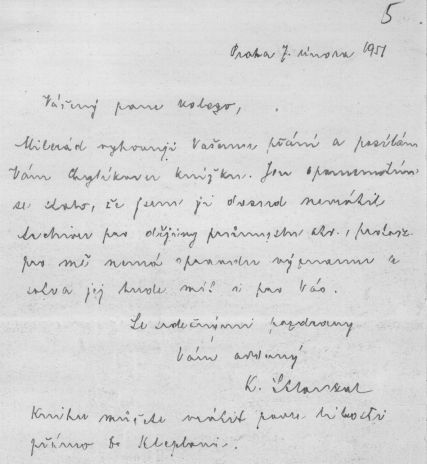 5
Praha 7. února 1951
Vážený pane kolego,
Milerád vyhovuji Vašemu přání a posílám
Vám Chytilkovu knížku. Jen
se stalo, že jsem ji dosud nevrátil
Archivu pro dějiny průmyslu atd., protože
pro mě nemá opravdu významu a
sotva jej bude mít i pro Vás.
Se srdečnými pozdravy
Vám oddaný
K.
Knihu můžete vrátit podle libosti
přímo Dr